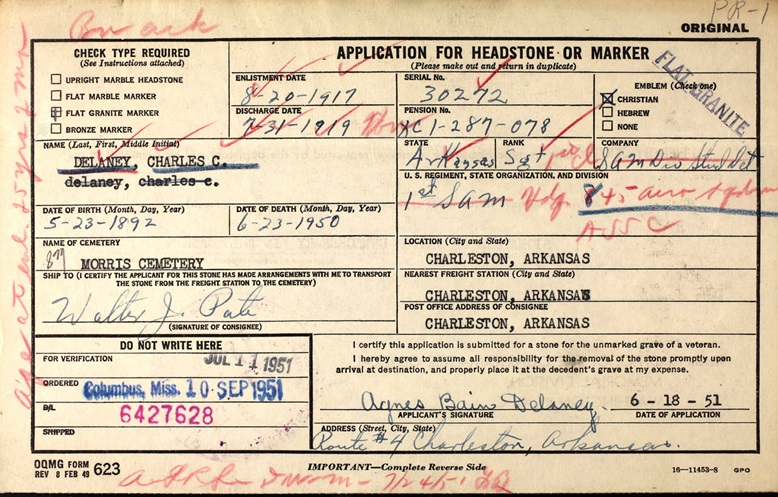 PR-1
ORIGINAL
CHECK TYPE REQUIRED
(See Instructions attached)
UPRIGHT MARBLE HEADSTONE
FLAT MARBLE MARKER
FLAT GRANITE MARKER
BRONZE MARKER
APPLICATION FOR HEADSTONE OR MARKER
(Please make out and return in duplicate)
ENLISTMENT DATE
8-20-1917
DISCHARGE DATE
7-31-1919
SERIAL No.
30272
PENSION No.
XC 1-287-078
EMBLEM (Check one)
CHRISTIAN
HEBREW
NONE
FLAT GRANITE
NAME (Last, First, Middle Initial)
DELANEY, CHARLES C.
delaney, charles c.
STATE
Arkansas
RANK
Sgt
COMPANY
U. S. REGIMENT, STATE ORGANIZATION, AND DIVISION
1st SAM
845 aero
ASSC
DATE OF BIRTH (Month, Day, Year)
5-23-1892
DATE OF DEATH (Month, Day, Year)
6-23-1950
NAME OF CEMETERY
MORRIS CEMETERY
LOCATION (City and State)
CHARLESTON, ARKANSAS
SHIP TO (I CERTIFY THE APPLICANT FOR THIS STONE HAS MADE ARRANGEMENTS WITH ME TO TRANSPORT
THE STONE FROM THE FREIGHT STATION TO THE CEMETERY)
Walter J. Pate
(SIGNATURE OF CONSIGNEE)
NEAREST FREIGHT STATION (City and State)
CHARLESTON, ARKANSAS
POST OFFICE ADDRESS OF CONSIGNEE
CHARLESTON, ARKANSAS
DO NOT WRITE HERE
FOR VERIFICATION
JUL 11 1951
ORDERED
Columbus, Miss. 10 SEP 1951
B/L
6427628
SHIPPED
I certify this application is submitted for a stone for the unmarked grave of a veteran.
I hereby agree to assume all responsibility for the removal of the stone promptly upon
arrival at destination, and properly place it at the decedent's grave at my expense.
Agnes Bain Delaney
APPLICANT'S SIGNATURE
6-18-51
DATE OF APPLICATION
ADDRESS (Street, City, State)
Route #4 Charleston, Arkansas.
OQMG FORM
REV 8 FEB 49
623
IMPORTANT—Complete Reverse Side
16—11453-8 GPO